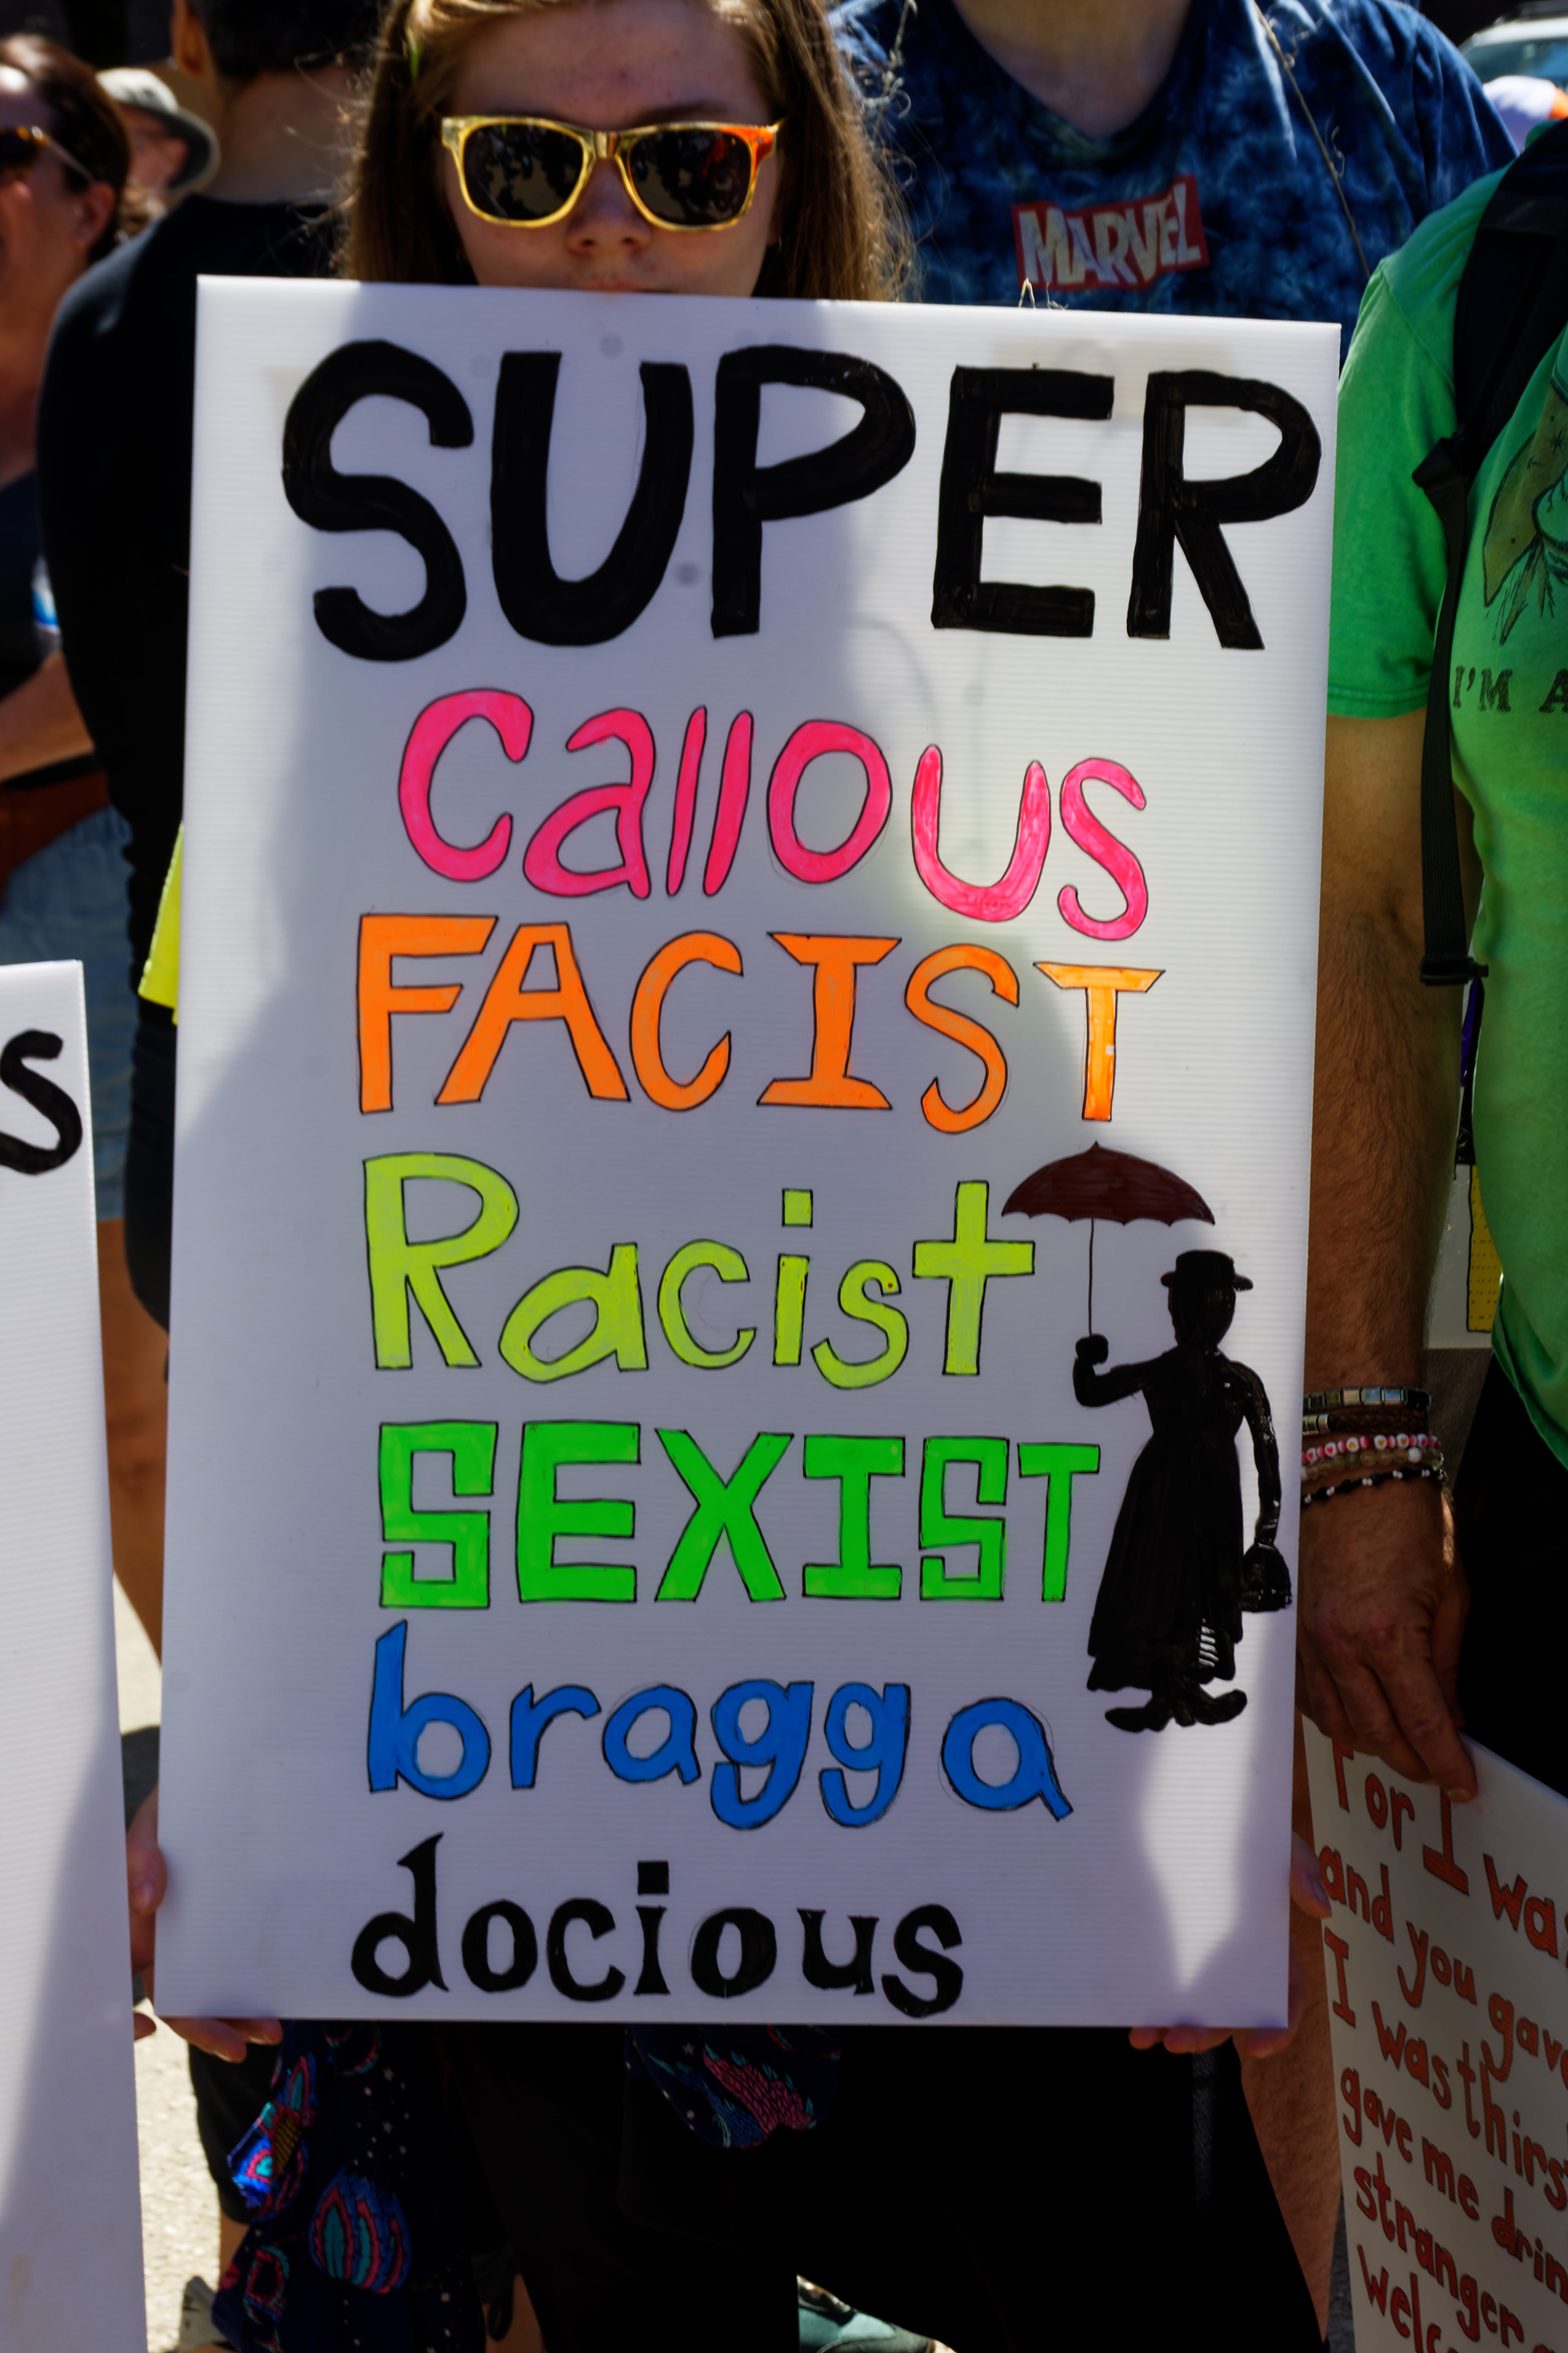 MARVEL
SUPER
Callous
FACIST
Racist
SEXIST
bragga
docious
I'M A
S
For I was
and you gave
I was thirs
gave me drin
stranger
Welc